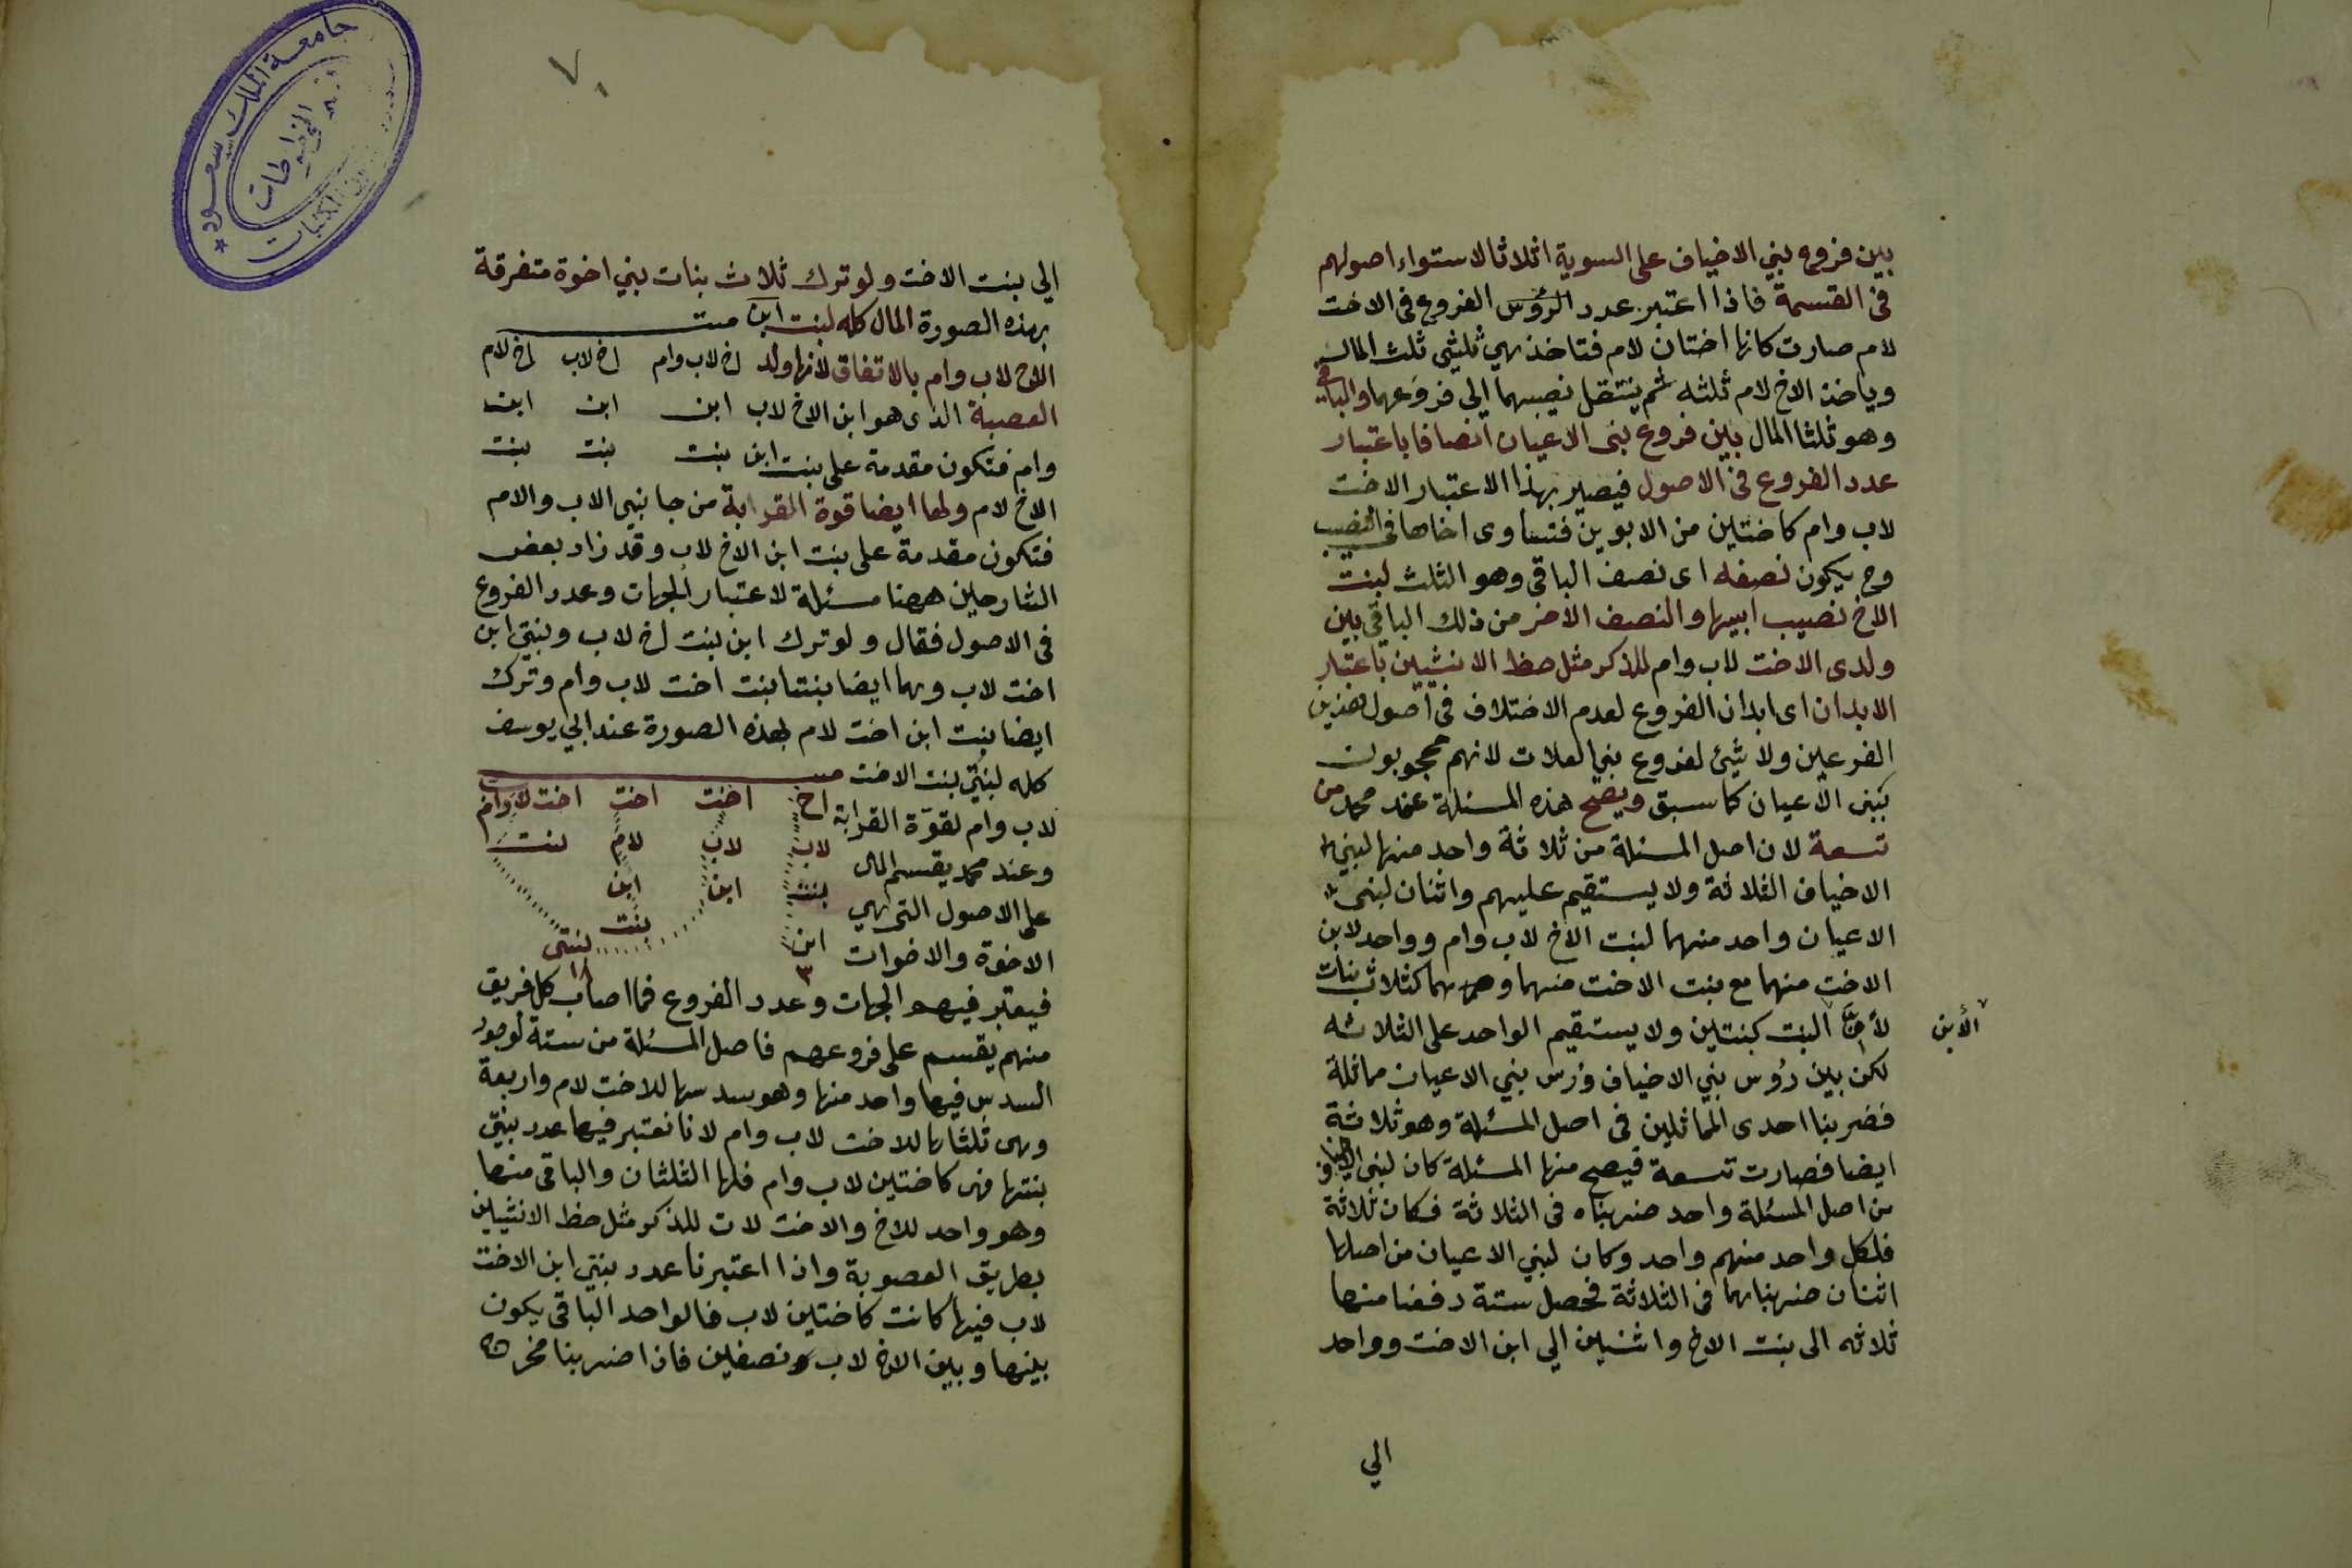 بين فروع بني الاخياف على السوية اثلاثا لاستواء اصولهم
فى القسمة فاذا اعتبر عدد الرؤس الفروع فى الاخت
لام صارت كانها اختان لام فتاخذ هي ثلثى ثلث المال
وياخذ الاخ لام ثلثه ثم ينتقل نصيبهما الى فروعهما والباقى
وهو ثلثا المال بين فروع بنى الاعيان انصافا باعتبار
عدد الفروع فى الاصول فيصير بهذا الاعتبار الاخت
لاب وام كاختين من الابوين فتساوى اخاها فى النصيب
وح يكون نصفه اى نصف الباقى وهو الثلث لبنت
الاخ نصيب ابيها والنصف الاخر من ذلك الباقى بين
ولدى الاخت لاب وام للذكر مثل حظ الانثيين باعتبار
الابدان اى ابدان الفروع لعدم الاختلاف فى اصول هذين
الفرعين ولا شئ لفروع بنى العلات لانهم محجوبون
ببنى الاعيان كما سبق ويصح هذه المسئلة عند محمد من
تسعة لان اصل المسئلة من ثلاثة واحد منها لبني
الاخياف الثلاثة ولا يستقيم عليهم واثنان لبنى
الاعيان واحد منهما لبنت الاخ لاب وام وواحد لابن
الاخت منهما مع بنت الاخت منهما وهما كثلاث بنات
لأن البنت كبنتين ولا يستقيم الواحد على الثلاثه
الأبن
لكن بين رؤس بني الاخياف ورؤس بني الاعيان مماثلة
فضربنا احدى المماثلين فى اصل المسئلة وهو ثلاثة
ايضا فصارت تسعة فيصح منها المسئلة كان لبنى الاخياف
من اصل المسئلة واحد ضربناه فى الثلاثة فكان ثلاثة
فلكل واحد منهم واحد وكان لبني الاعيان من اصلها
اثنان ضربناهما فى الثلاثة فحصل ستة دفعنا منها
ثلاثه الى بنت الاخ واثنين الي ابن الاخت وواحد
الي
٧٠
الي بنت الاخت ولو ترك ثلاث بنات بني اخوة متفرقة
بهذه الصورة المال كله لبنت ابن ميت
الاخ لاب وام بالاتفاق لانها ولد اخ لاب وام اخ لاب اخ لام
العصبة الذى هو ابن الاخ لاب ابن ابن ابن
وام فتكون مقدمة على بنت ابن بنت بنت بنت
الاخ لام ولها ايضا قوة القرابة من جانبى الاب والام
فتكون مقدمة على بنت ابن الاخ لاب وقد زاد بعض
الشارحين ههنا مسئلة لاعتبار الجهات وعدد الفروع
فى الاصول فقال ولو ترك ابن بنت اخ لاب وبنتى ابن
اخت لاب وهما ايضا بنتا بنت اخت لاب وام وترك
ايضا بنت ابن اخت لام بهذه الصورة عند ابي يوسف
كله لبنتي بنت الاخت ميت
لاب وام لقوة القرابة اخ اخت اخت اخت لاب وام
وعند محمد يقسم المال لاب لاب لام بنت
على الاصول التى هي بنت ابن ابن
الاخوة والاخوات ابن بنت بنتى
٣ ١٨
فيعتبر فيهم الجهات وعدد الفروع فما اصاب كل فريق
منهم يقسم على فروعهم فاصل المسئلة من ستة لوجود
السدس فيها واحد منها وهو سدسها للاخت لام واربعة
وهى ثلثاها للاخت لاب وام لانا نعتبر فيها عدد بنتي
بنتها فهى كاختين لاب وام فلها الثلثان والباقى منها
وهو واحد للاخ والاخت لاب للذكر مثل حظ الانثيين
بطريق العصوبة واذا اعتبرنا عدد بنتي ابن الاخت
لاب فيها كانت كاختين لاب فالواحد الباقى يكون
بينها وبين الاخ لاب نصفين فاذا ضربنا مخرج
جامعة الملك سعود
المخطوطات